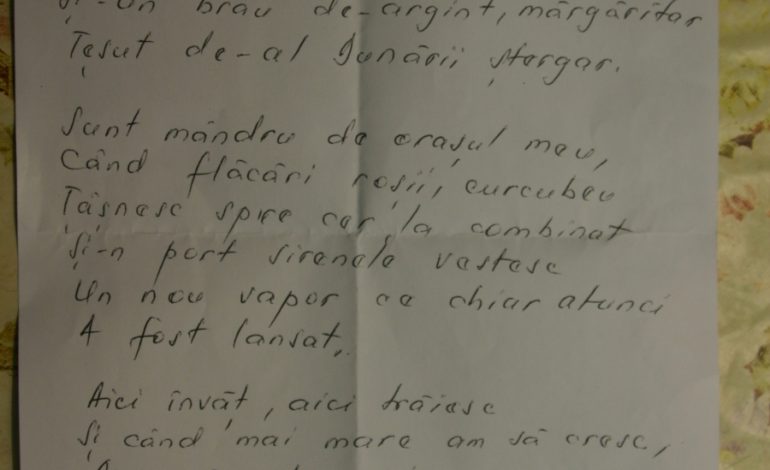 Și-un brâu de-argint, mărgăritar
Țesut de-al Dunării ștergar.
Sunt mândru de orașul meu,
Când flăcări roșii, curcubeu
Țâșnesc spre cer, la combinat
Și-n port sirenele vestesc
Un nou vapor ce chiar atunci
A fost lansat.
Aici învăț, aici trăiesc
Și când mai mare am să cresc,